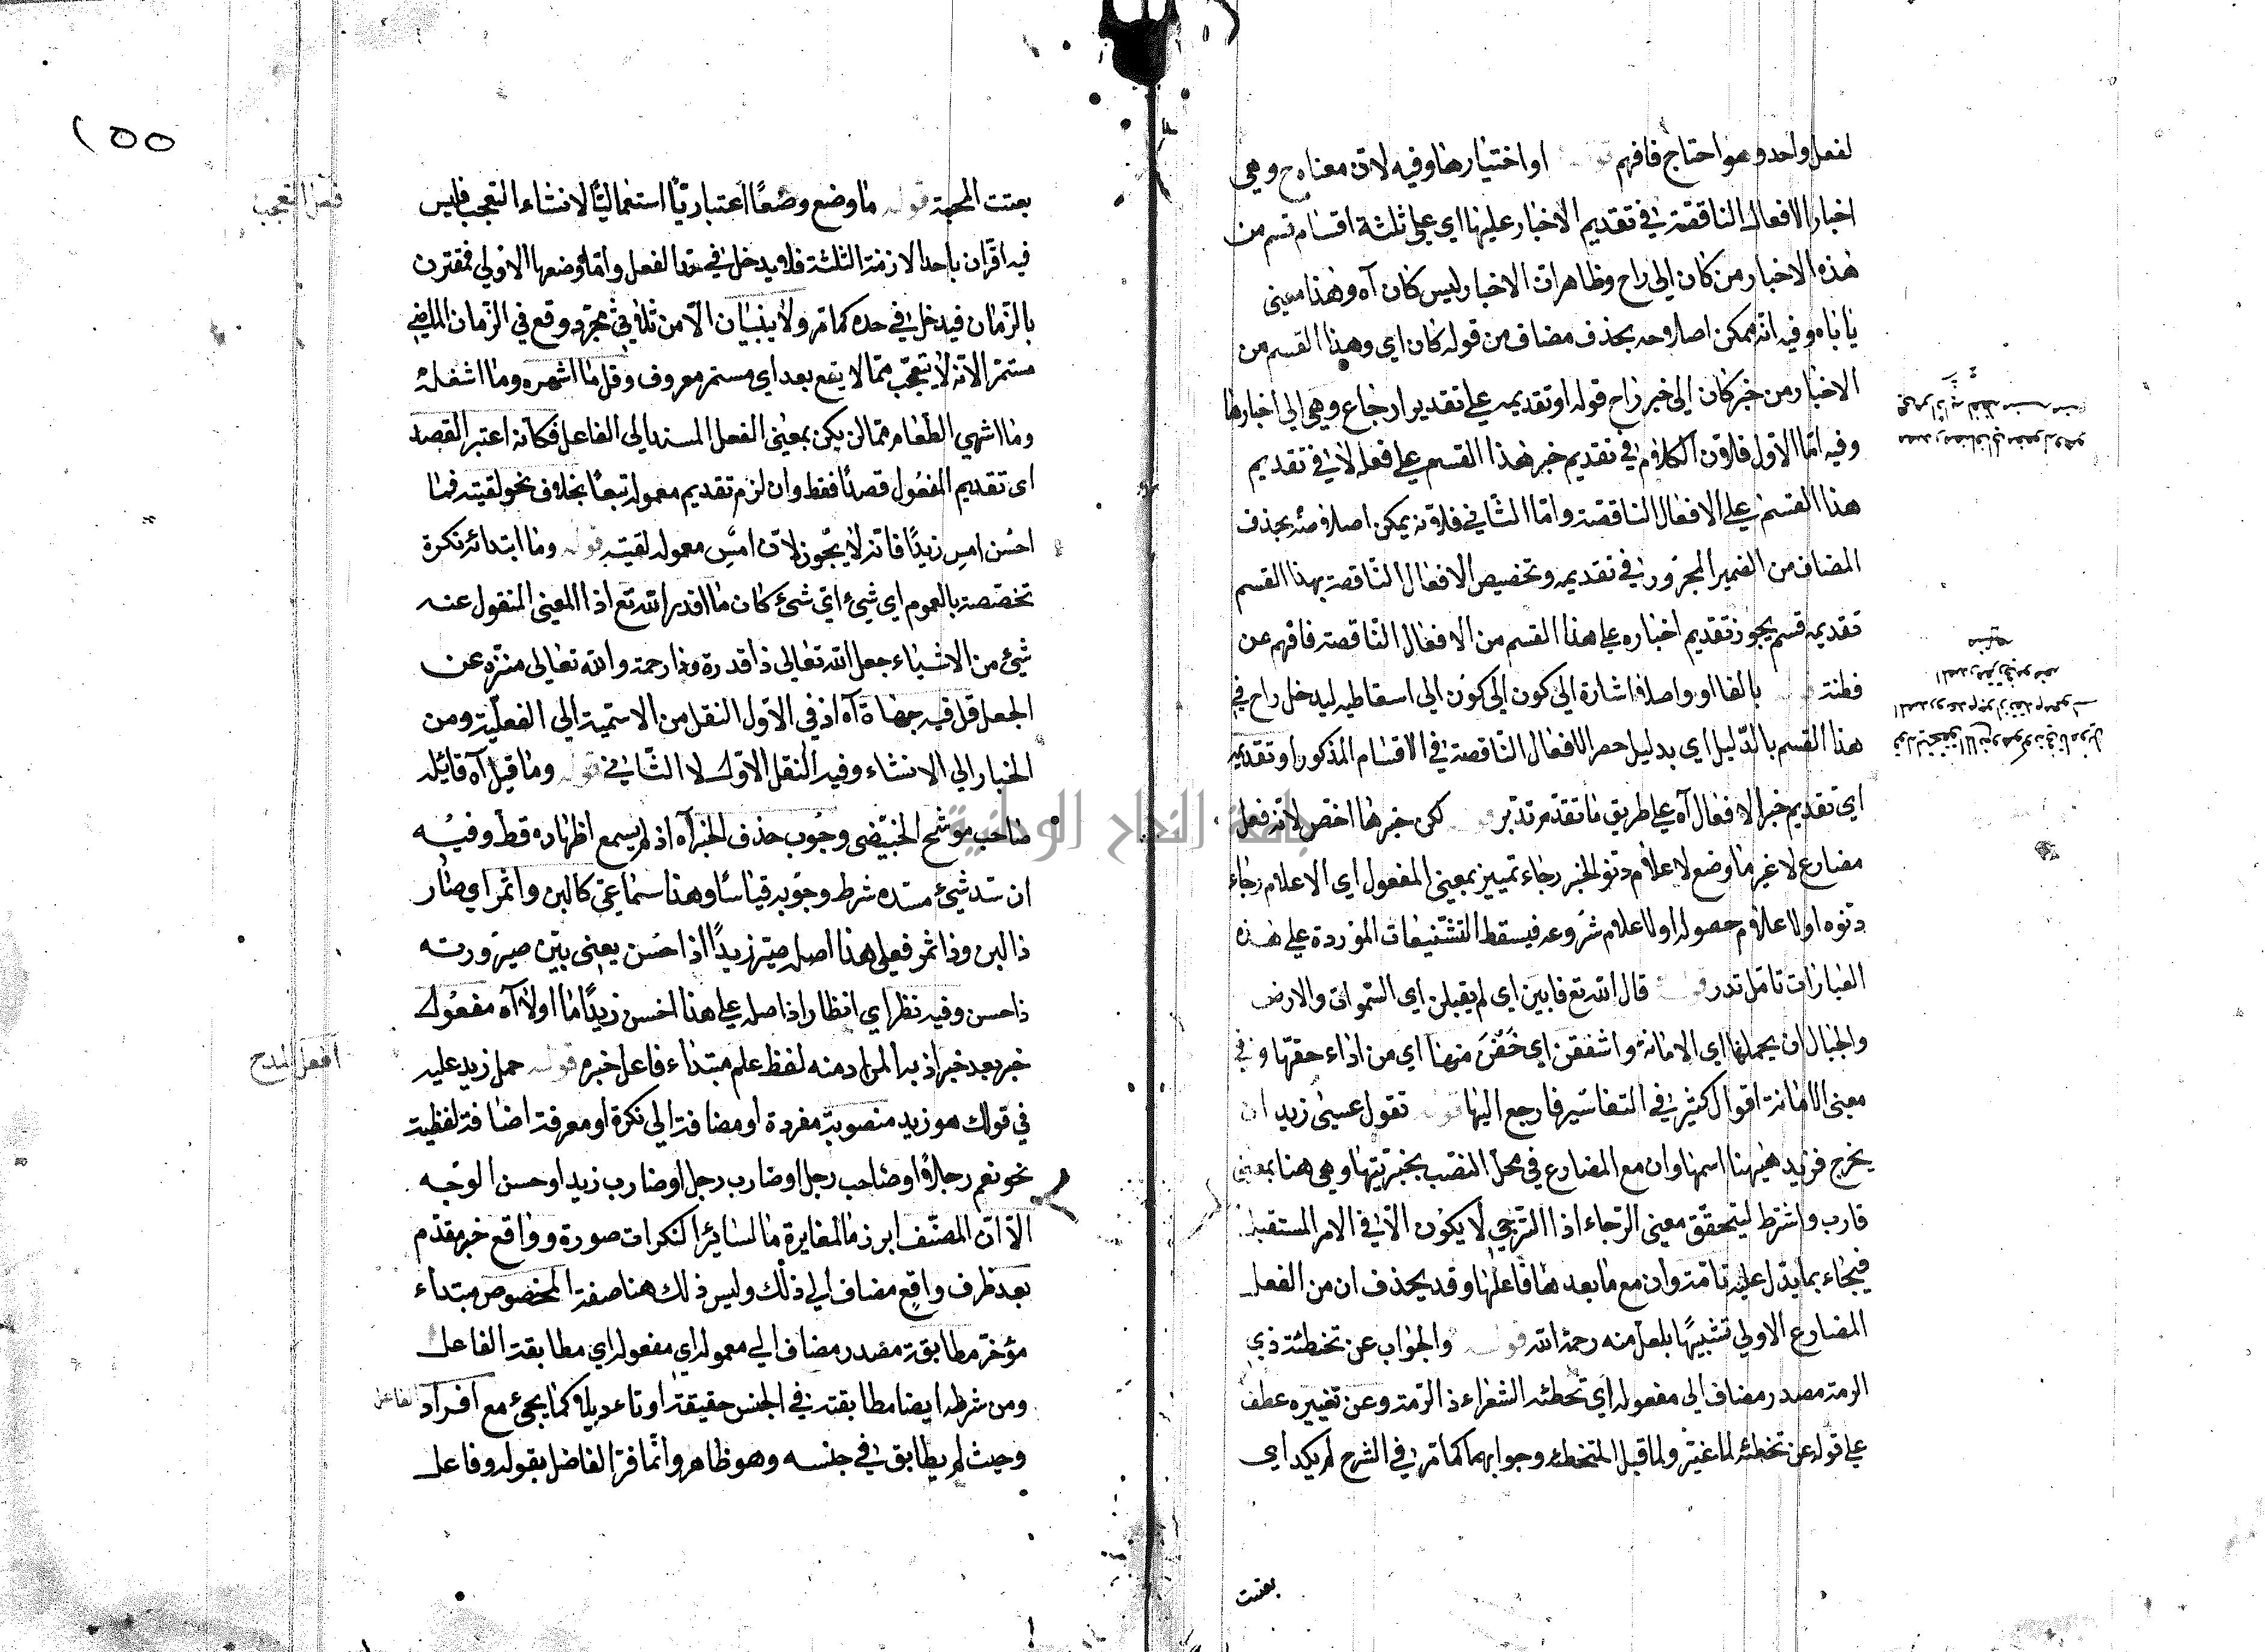 لفعل واحد وهو احتاج فافهم قوله او اختيارها وفيه لان معناه ح وهي
اخبار الافعال الناقصة في تقديم الاخبار عليها اي على ثلثة اقسام قسم من
هذه الاخبار من كان الى راح وظاهرات الاخبار ليس كان آه وهذا معنى
يأباه وفيه انه يمكن اصلاحه بحذف مضاف من قوله كان اي وهذا القسم من
الاخبار من خبر كان الى خبر راح قوله او تقديمه على تقدير ارجاع وهي الى اخبارها
وفيه اما الاول فلان الكلام في تقديم خبر هذا القسم على فعله لا في تقديم
هذا القسم على الافعال الناقصة واما الثاني فلانه يمكن اصلاحه بحذف
المضاف من الضمير المجرور في تقديمه وتخصيص الافعال الناقصة بهذا القسم
تقديمه قسم يجوز تقديم اخباره على هذا القسم من الافعال الناقصة فافهم عن
فطنة قوله بالفا او واصله اشارة الى كون الى كون الى اسقاطيه ليدخل راح في
هذا القسم بالدليل اي بدليل حصر الافعال الناقصة في الاقسام المذكور او تقديم
اي تقديم خبر الافعال آه على طريق ما تقدم تدبر قوله لكن خبرها اخص لانه فعل
مضارع لا غير ما وضع لاعلام دنو الخبر رجاء تمييز بمعنى المفعول اي الاعلام رجاء
دنوه او لاعلام حصوله او لاعلام شروعه فيسقط التشنيعات الموردة على هذه
العبارات تأمل تدر قوله قال الله تع فابين اي لم يقبلن اي السموات والارض
والجبال ان يحملنها اي الامانة واشفقن اي خفن منها اي من اداء حقها وفي
معنى الامانة اقوال كثيرة في التفاسير فارجع اليها قوله تقول عسى زيد ان
يخرج فزيد هيهنا اسمها وان مع المضارع في محل النصب بخبريتها وهي هنا بمعنى
قارب واشترط ليتحقق معنى الرجاء اذ الترجي لا يكون الا في الامر المستقبل
فيجاء بما يدل عليه تامة وان مع ما بعدها فاعلها وقد يحذف ان من الفعل
المضارع الاولى تشبيها بلعل منه رحمة الله قوله والجواب عن تخطئة ذي
الرمة مصدر مضاف الى مفعوله اي تخطئه الشعراء ذا الرمة وعن تغييره عطف
على قوله عن تخطئه لما غير ولما قبل التخطئه وجوابهما كما مر في الشرح لم يكد اي
بعتت
١٥٥
بعتت المحبة قوله ما وضع وضعًا اعتباريًّا استعماليًّا لانشاء التعجب فليس
فصل التعجب
فيه اقران باحد الازمنة الثلثة فلا يدخل في حد الفعل واما وضعها الاولى فمقترن
بالزمان فيدخل في حده كما مر ولا ينبيان الا من ثلاثي مجرد وقع في الزمان الماضي
مستمر الانه لا تتعجب مما لا يقع بعد اي مستمر معروف وقل ما اشهره وما اشغله
وما اشهى الطعام مما لن يكن بمعنى الفعل المسند الى الفاعل فكانه اعتبر القصد
اى تقديم المفعول قصدًا فقط وان لزم تقديم معموله تبعًا بخلاف نحو لقيته فما
احسن امس زيدًا فانه لا يجوز لان امس معموله لقيته قوله وما ابتدائه نكرة
تخصصة بالعموم اي شيء اي شئ كان ما اقدر الله تع اذ المعنى المنقول عنه
شئ من الاشياء جعل الله تعالى ذا قدرة وذا رحمة والله تعالى منزه عن
الجعل قل فيه جهاة آه اذ في الاول النقل من الاسمية الى الفعلية ومن
الخبار الى الانشاء وفيه النقل الاول لا الثاني قوله وما قيل آه قائله
صاحب موشح الخبيضى وجوب حذف الخبر آه اذ لم يسمع اظهاره قط وفيه
ان سد شيئ مسده شرط وجوبه قياسًا وهذا سماعي كالبن واثمر اي صار
ذا لبن وذا ثمر فعلى هذا اصله صير زيدًا اذا حسن يعنى بين صيرورته
ذا حسن وفيه نظر اي انظار اذ اصله على هذا احسن زيدًا ما اولا آه مفعوله
خبر بعد خبر اذ به المراد منه لفظ علم مبتداء فاعل خبره قوله حمل زيد عليه
افعل المدح
في قولك هو زيد منصوبة مفردة او مضافة الى نكرة او معرفة اضافة لفظية
نحو نعم رجلا او صاحب رجل او ضارب رجل او ضارب زيد او حسن الوجه
الا ان المصنف ابرز ما لمغايرة ما لسائر النكرات صورة وواقع خبر مقدم
بعد ظرف واقع مضاف الى ذلك وليس ذلك هنا صفة المخصوص مبتداء
مؤخر مطابقة مصدر مضاف الى معموله اي مفعوله اي مطابقة الفاعل
ومن شرطه ايضا مطابقته في الجنس حقيقة او تاعديلا كما يجئ مع افراد الفاعل
وحيث لم يطابق في جنسه وهو ظاهر وانما فرّ الفاضل بقوله وفاعل
جامعة النجاح الوطنية